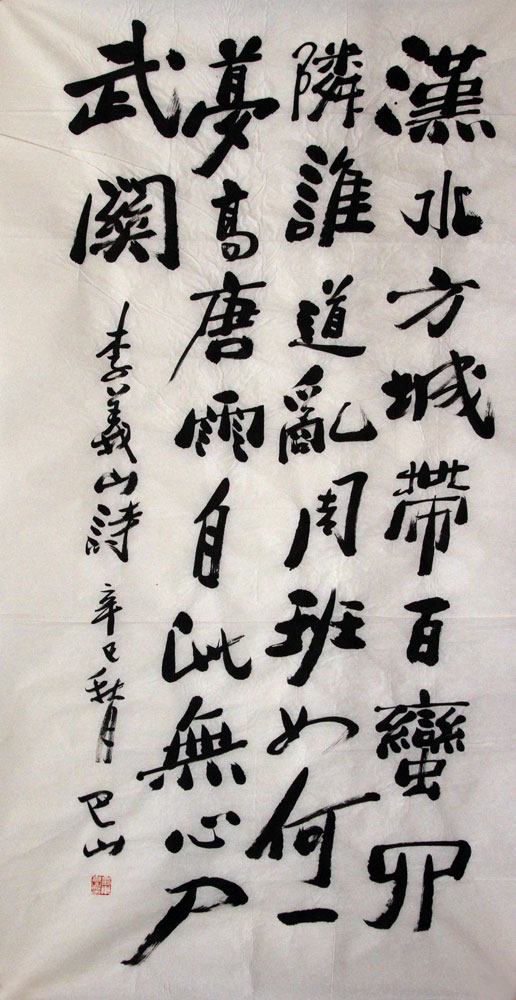 漢水方城帶百蠻四
隣誰道亂周班如何一
夢高唐雨自此無心入
武關
李義山詩 辛巳秋月 巴山